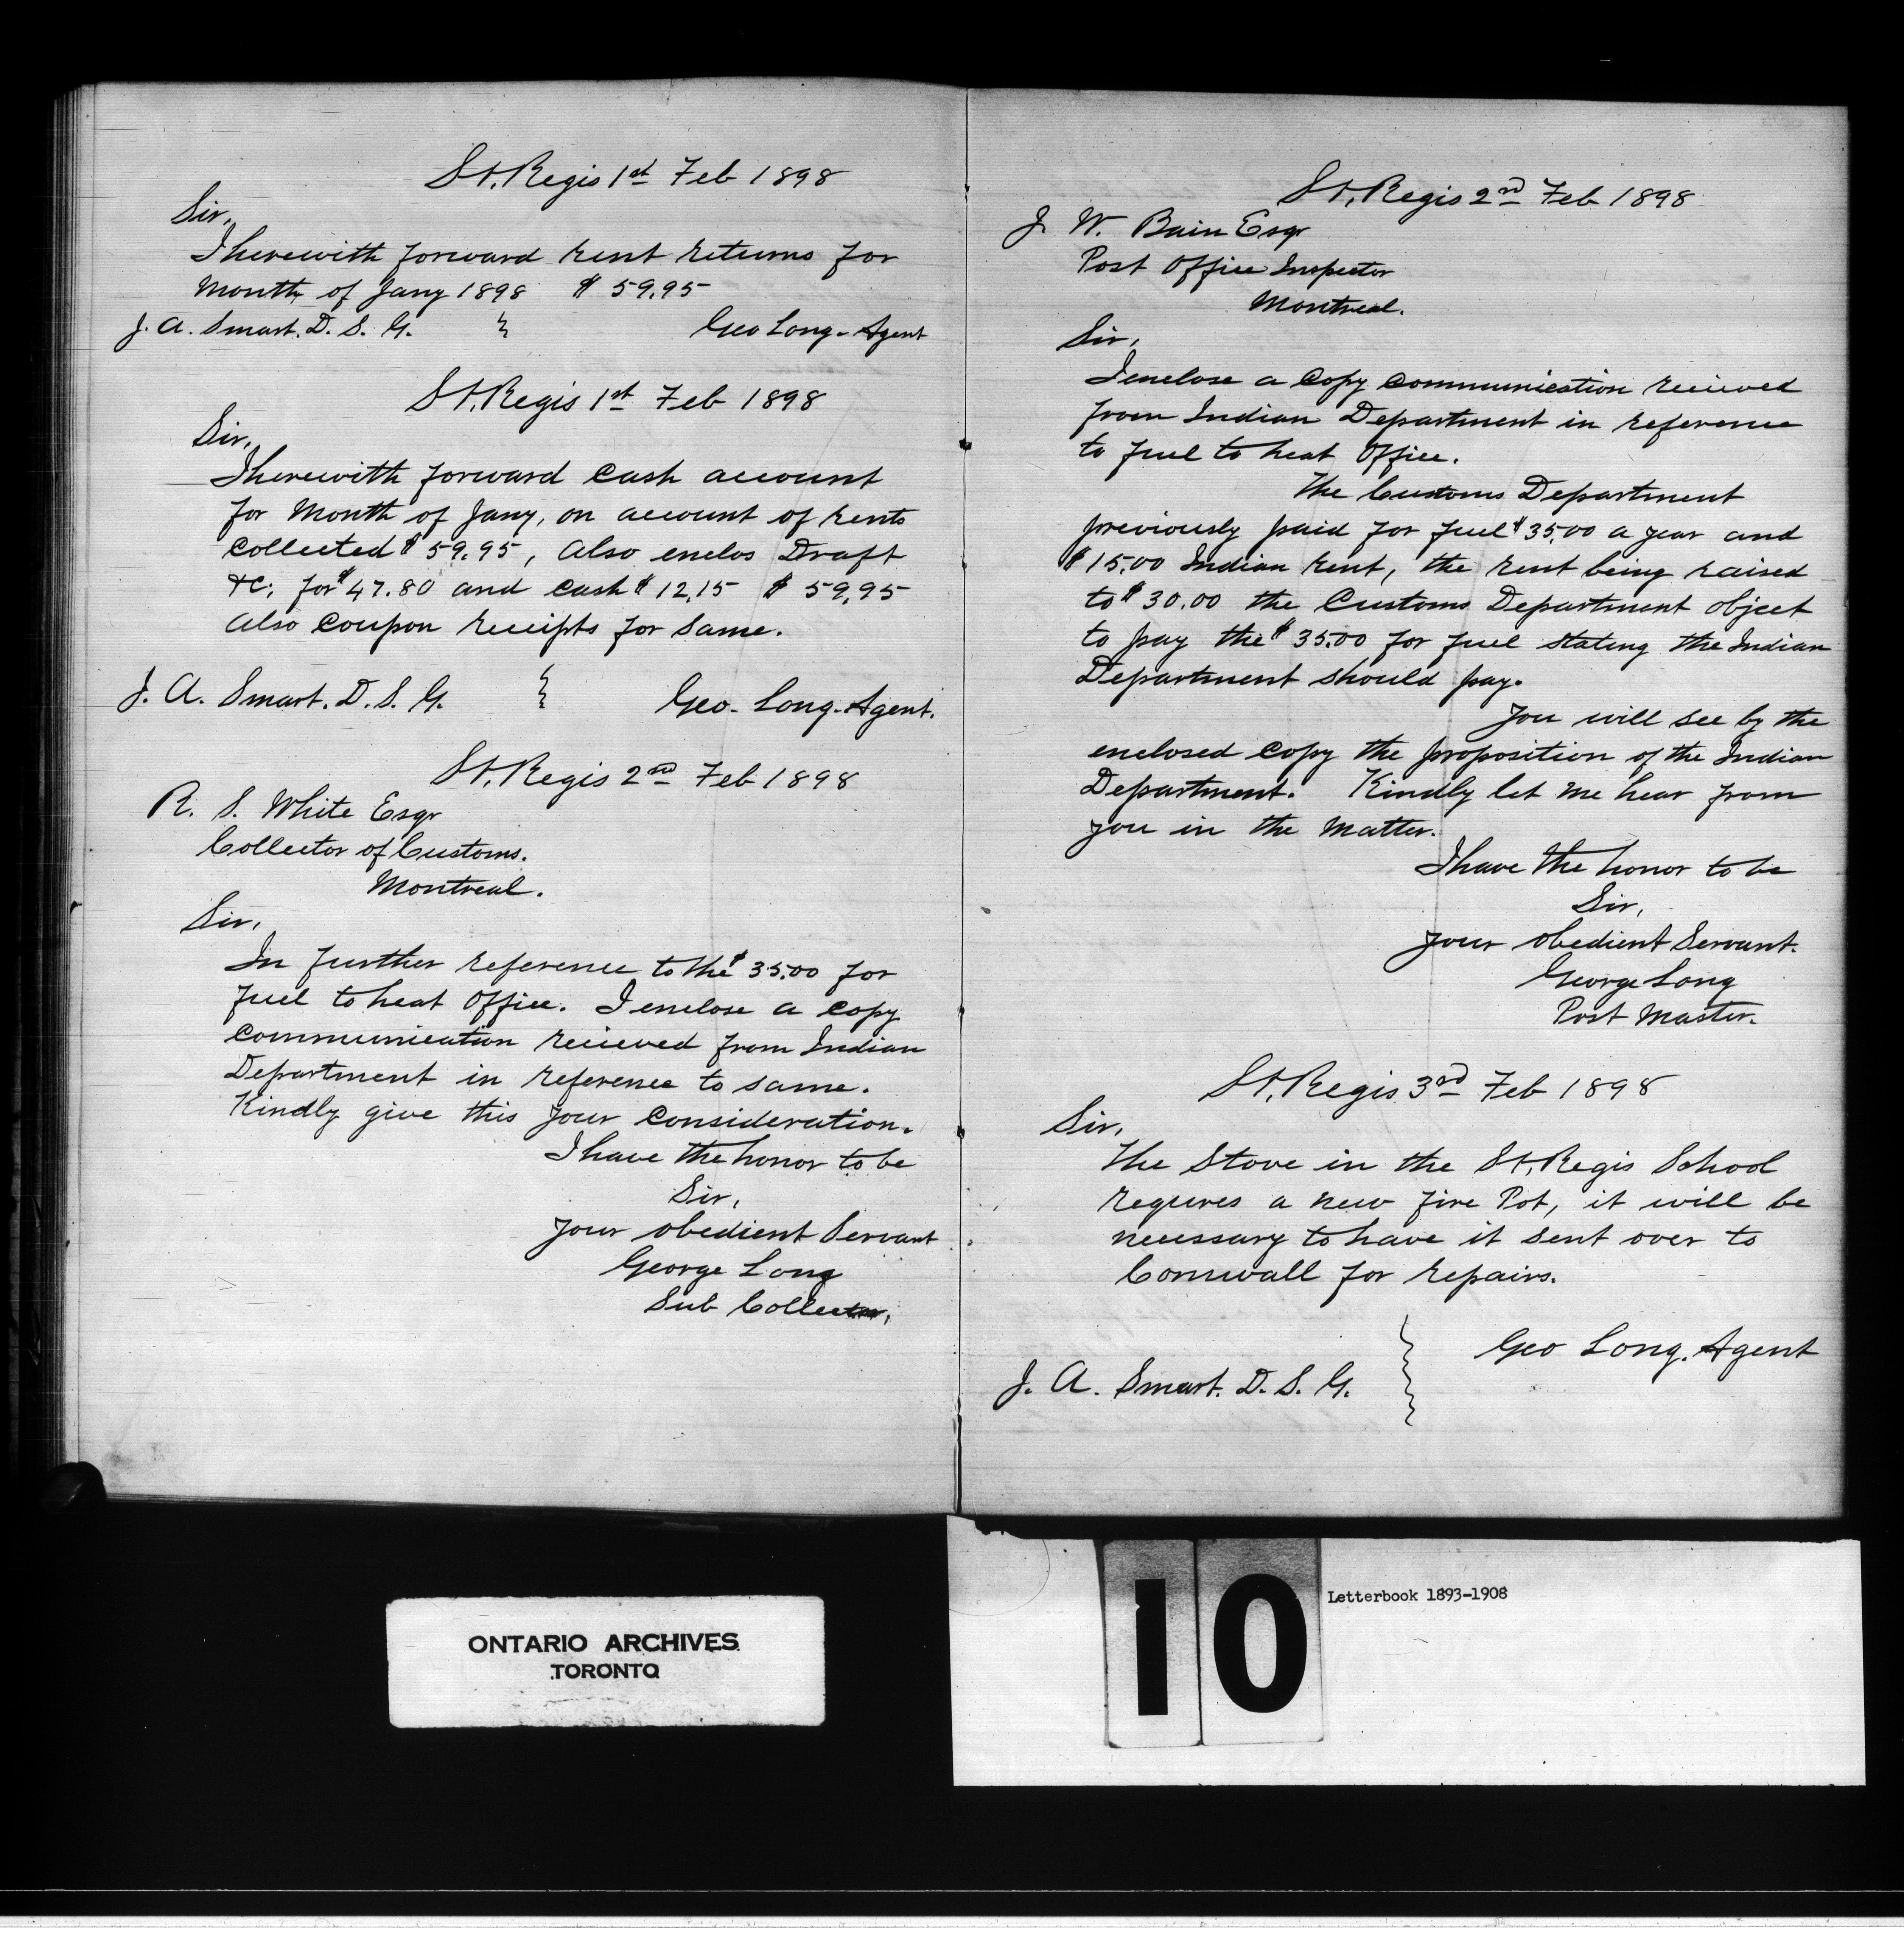 St. Regis 1st Feb 1898
Sir,
I herewith forward rent returns for
Month of Jany 1898 $59.95
J. A. Smart. D. S. G. Geo Long - Agent
St. Regis 1st Feb 1898
Sir,
I herewith forward Cash account
for Month of Jany, on account of rents
Collected $59.95, Also enclos Draft
&c; for $47.80 and cash $12.15 $59.95
Also Coupon receipts for Same.
J. A. Smart. D. S. G. Geo. Long - Agent.
St. Regis 2nd Feb 1898
R. S. White Esqr
Collector of Customs.
Montreal.
Sir,
In further reference to the $35.00 for
fuel to heat Office. I enclose a Copy
Communication recieved from Indian
Department in reference to same.
Kindly give this your Consideration.
I have the honor to be
Sir,
your obedient Servant
George Long
Sub Collector,
St. Regis 2nd Feb 1898
J. W. Bain Esqr
Post Office Inspector
Montreal.
Sir,
I enclose a Copy Communication recieved
from Indian Department in reference
to fuel to heat Office.
The Customs Department
previously paid for fuel $35.00 a year and
$15.00 Indian Rent, the rent being raised
to $30.00 the Customs Department object
to pay the $35.00 for fuel stating the Indian
Department should pay.
You will see by the
enclosed Copy the proposition of the Indian
Department. Kindly let me hear from
you in the Matter.
I have the honor to be
Sir,
your obedient Servant.
George Long
Post Master.
St. Regis 3rd Feb 1898
Sir,
The Stove in the St. Regis School
requires a new fire Pot, it will be
necessary to have it sent over to
Cornwall for repairs.
Geo Long. Agent
J. A. Smart. D. S. G.
ONTARIO ARCHIVES
TORONTO
10
Letterbook 1893-1908